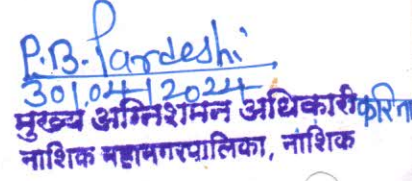 P.B. Pardeshi
30/04/2024
मुख्य अग्निशमन अधिकारी करिता
नाशिक महानगरपालिका, नाशिक